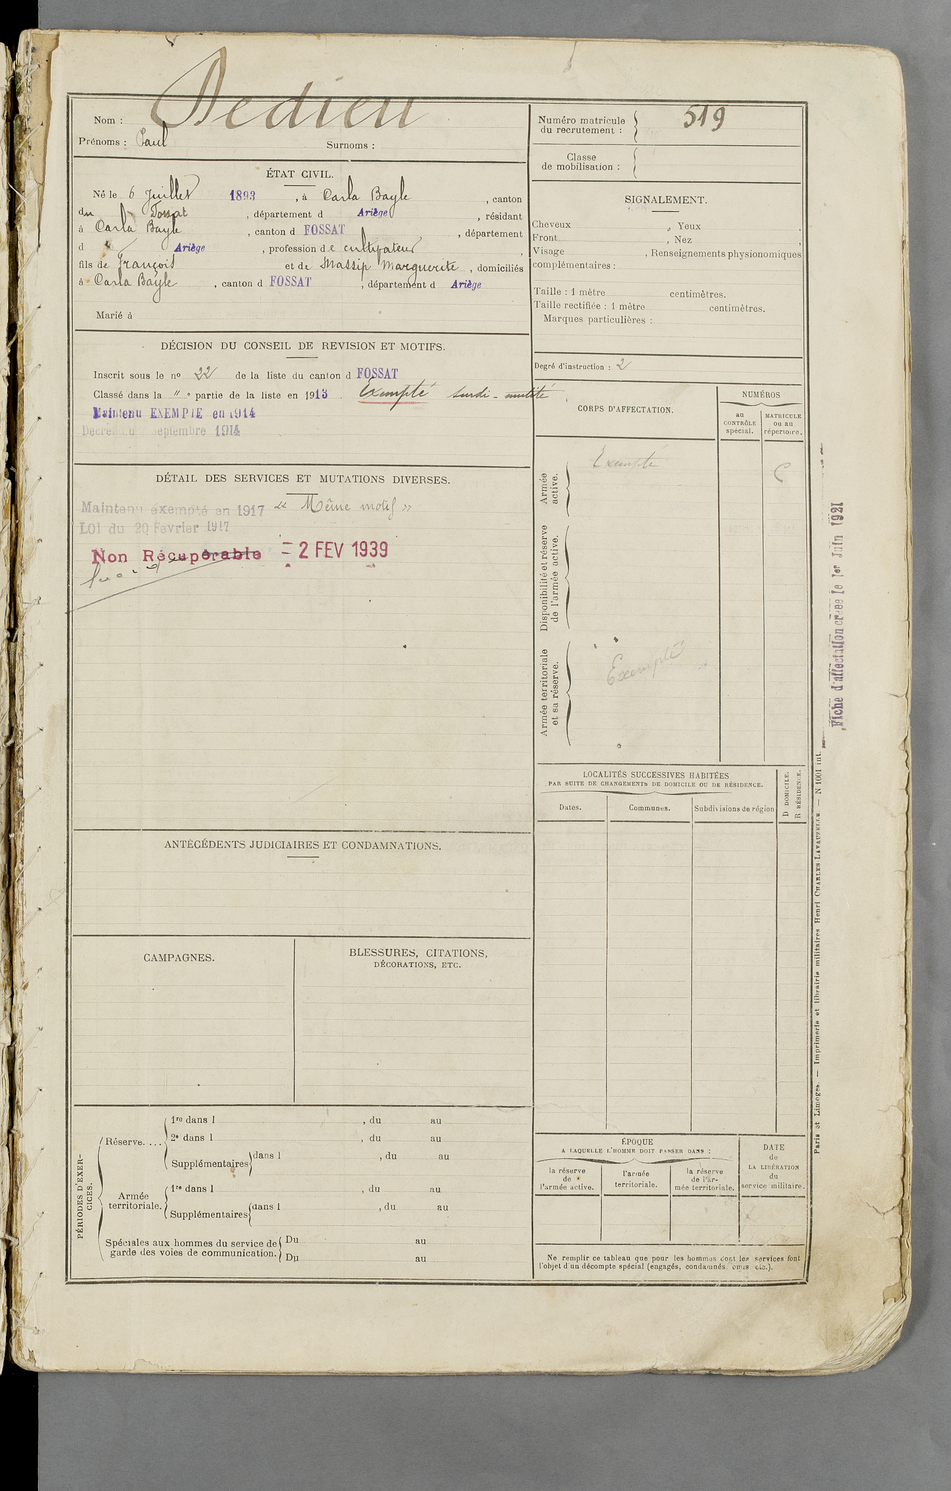 Nom : Dedieu
Prénoms : Paul Surnoms :
ÉTAT CIVIL.
Né le 6 Juillet 1893, à Carla Bayle, canton
du Fossat, département d Ariège, résidant
à Carla Bayle, canton d FOSSAT, département
d Ariège, profession de cultivateur,
fils de François et de Massip Marguerite, domiciliés
à Carla Bayle, canton d FOSSAT, département d Ariège
Marié à
DÉCISION DU CONSEIL DE REVISION ET MOTIFS.
Inscrit sous le nº 22 de la liste du canton d FOSSAT
Classé dans la " e partie de la liste en 1913. Exempté surdi-mutité
Maintenu EXEMPTE en 1914
Décret du septembre 1914
DÉTAIL DES SERVICES ET MUTATIONS DIVERSES.
Maintenu exempté en 1917 « Même motif »
LOI du 20 Fevrier 1917
Non Récupérable = 2 FEV 1939
ANTÉCÉDENTS JUDICIAIRES ET CONDAMNATIONS.
CAMPAGNES.
BLESSURES, CITATIONS,
DÉCORATIONS, ETC.
PÉRIODES D'EXER-
CICES.
Réserve....
1re dans l , du au
2e dans l , du au
Supplémentaires dans l , du au
Armée
territoriale.
1re dans l , du au
Supplémentaires dans l , du au
Spéciales aux hommes du service de
garde des voies de communication.
Du au
Du au
Numéro matricule
du recrutement : 519
Classe
de mobilisation :
SIGNALEMENT.
Cheveux , Yeux
Front , Nez
Visage , Renseignements physionomiques
complémentaires :
Taille : 1 mètre centimètres.
Taille rectifiée : 1 mètre centimètres.
Marques particulières :
Degré d'instruction : 2
CORPS D'AFFECTATION.
NUMÉROS
au
CONTRÔLE
spécial.
MATRICULE
ou au
répertoire.
Armée
active.
Exempté
C
Disponibilité et réserve
de l'armée active.
Armée territoriale
et sa réserve.
Exempté
LOCALITÉS SUCCESSIVES HABITÉES
PAR SUITE DE CHANGEMENTS DE DOMICILE OU DE RÉSIDENCE.
D DOMICILE.
R RÉSIDENCE.
Dates. Communes. Subdivisions de région
ÉPOQUE
A LAQUELLE L'HOMME DOIT PASSER DANS :
la réserve
de
l'armée active.
l'armée
territoriale.
la réserve
de l'ar-
mée territoriale.
DATE
de
LA LIBÉRATION
du
service militaire.
Ne remplir ce tableau que pour les hommes dont les services font
l'objet d'un décompte spécial (engagés, condamnés, omis etc.).
Fiche d'affectation créée le 1er Juin 1921
Paris et Limoges. — Imprimerie et librairie militaires Henri CHARLES-LAVAUZELLE. — N 1001 int.